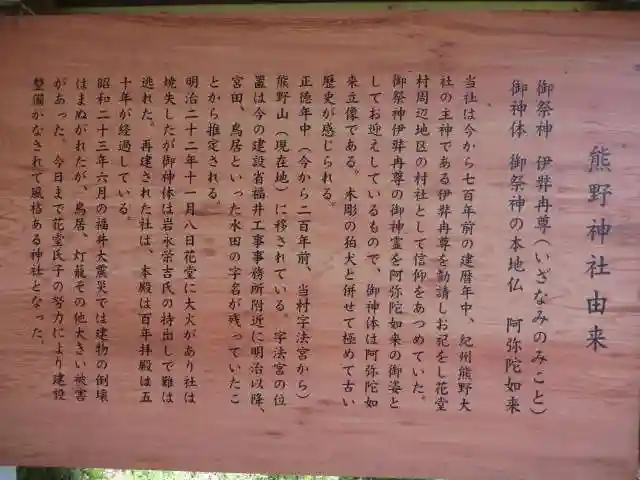 熊野神社由来
御祭神　伊弉冉尊(いざなみのみこと)
御神体　御祭神の本地仏　阿弥陀如来
当社は今から七百年前の建暦年中、紀州熊野大
社の主神である伊弉冉尊を勧請しお祀をし花堂
村周辺地区の村社として信仰をあつめていた。
御祭神伊弉冉尊の御神霊を阿弥陀如来の御姿と
してお迎えしているもので、御神体は阿弥陀如
来立像である。木彫の狛犬と併せて極めて古い
歴史が感じられる。
正徳年中(今から二百年前、当村字法宮から)
熊野山(現在地)に移されている。字法宮の位
置は今の建設省福井工事事務所附近に明治以降、
宮田、鳥居といった水田の字名が残っていたこ
とから推定される。
明治二十二年十一月八日花堂に大火があり社は
焼失したが御神体は岩永栄吉氏の持出しで難は
逃れた。再建された社は、本殿は百年拝殿は五
十年が経過している。
昭和二十三年六月の福井大震災では建物の倒壊
はまぬがれたが、鳥居、灯籠その他大きい被害
があった。今日まで花堂氏子の努力により建設
整備がなされて風格ある神社となった。